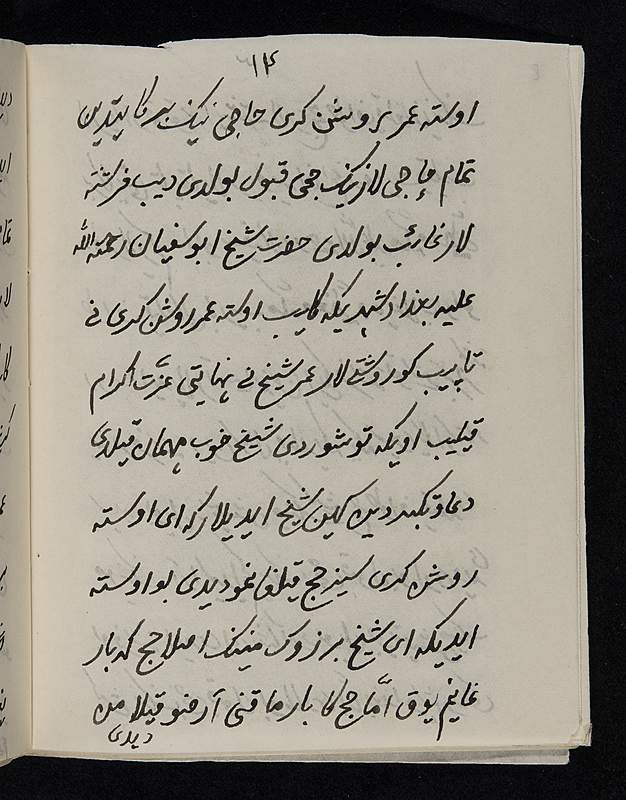 ۱۴
اوسته عمر روشن کری حاجی نینک بیر کا یتدین
تمام حاجی لارنینک حجی قبول بولدی دیب فرشته
لار غائب بولدی حضرت شیخ ابو سفیان رحمة الله
علیه بغداد شهریکه کلیب اوسته عمر روشن کری نی
تاپیب کوروشتی لار عمر شیخ نی نهایتی عزّت اکرام
قیلیب اویکه توشوردی شیخ خوب مهمان قیلدی
دعاء تکبیردین کیین شیخ ایدیلار که ای اوسته
روشن کری سیز حج قیلغانمو دیدی بو اوسته
ایدیکه ای شیخ بزروک مینینک اصلا حج که بار
غانیم یوق امّا حج کا بارماقنی آرضو قیلا من
دیدی